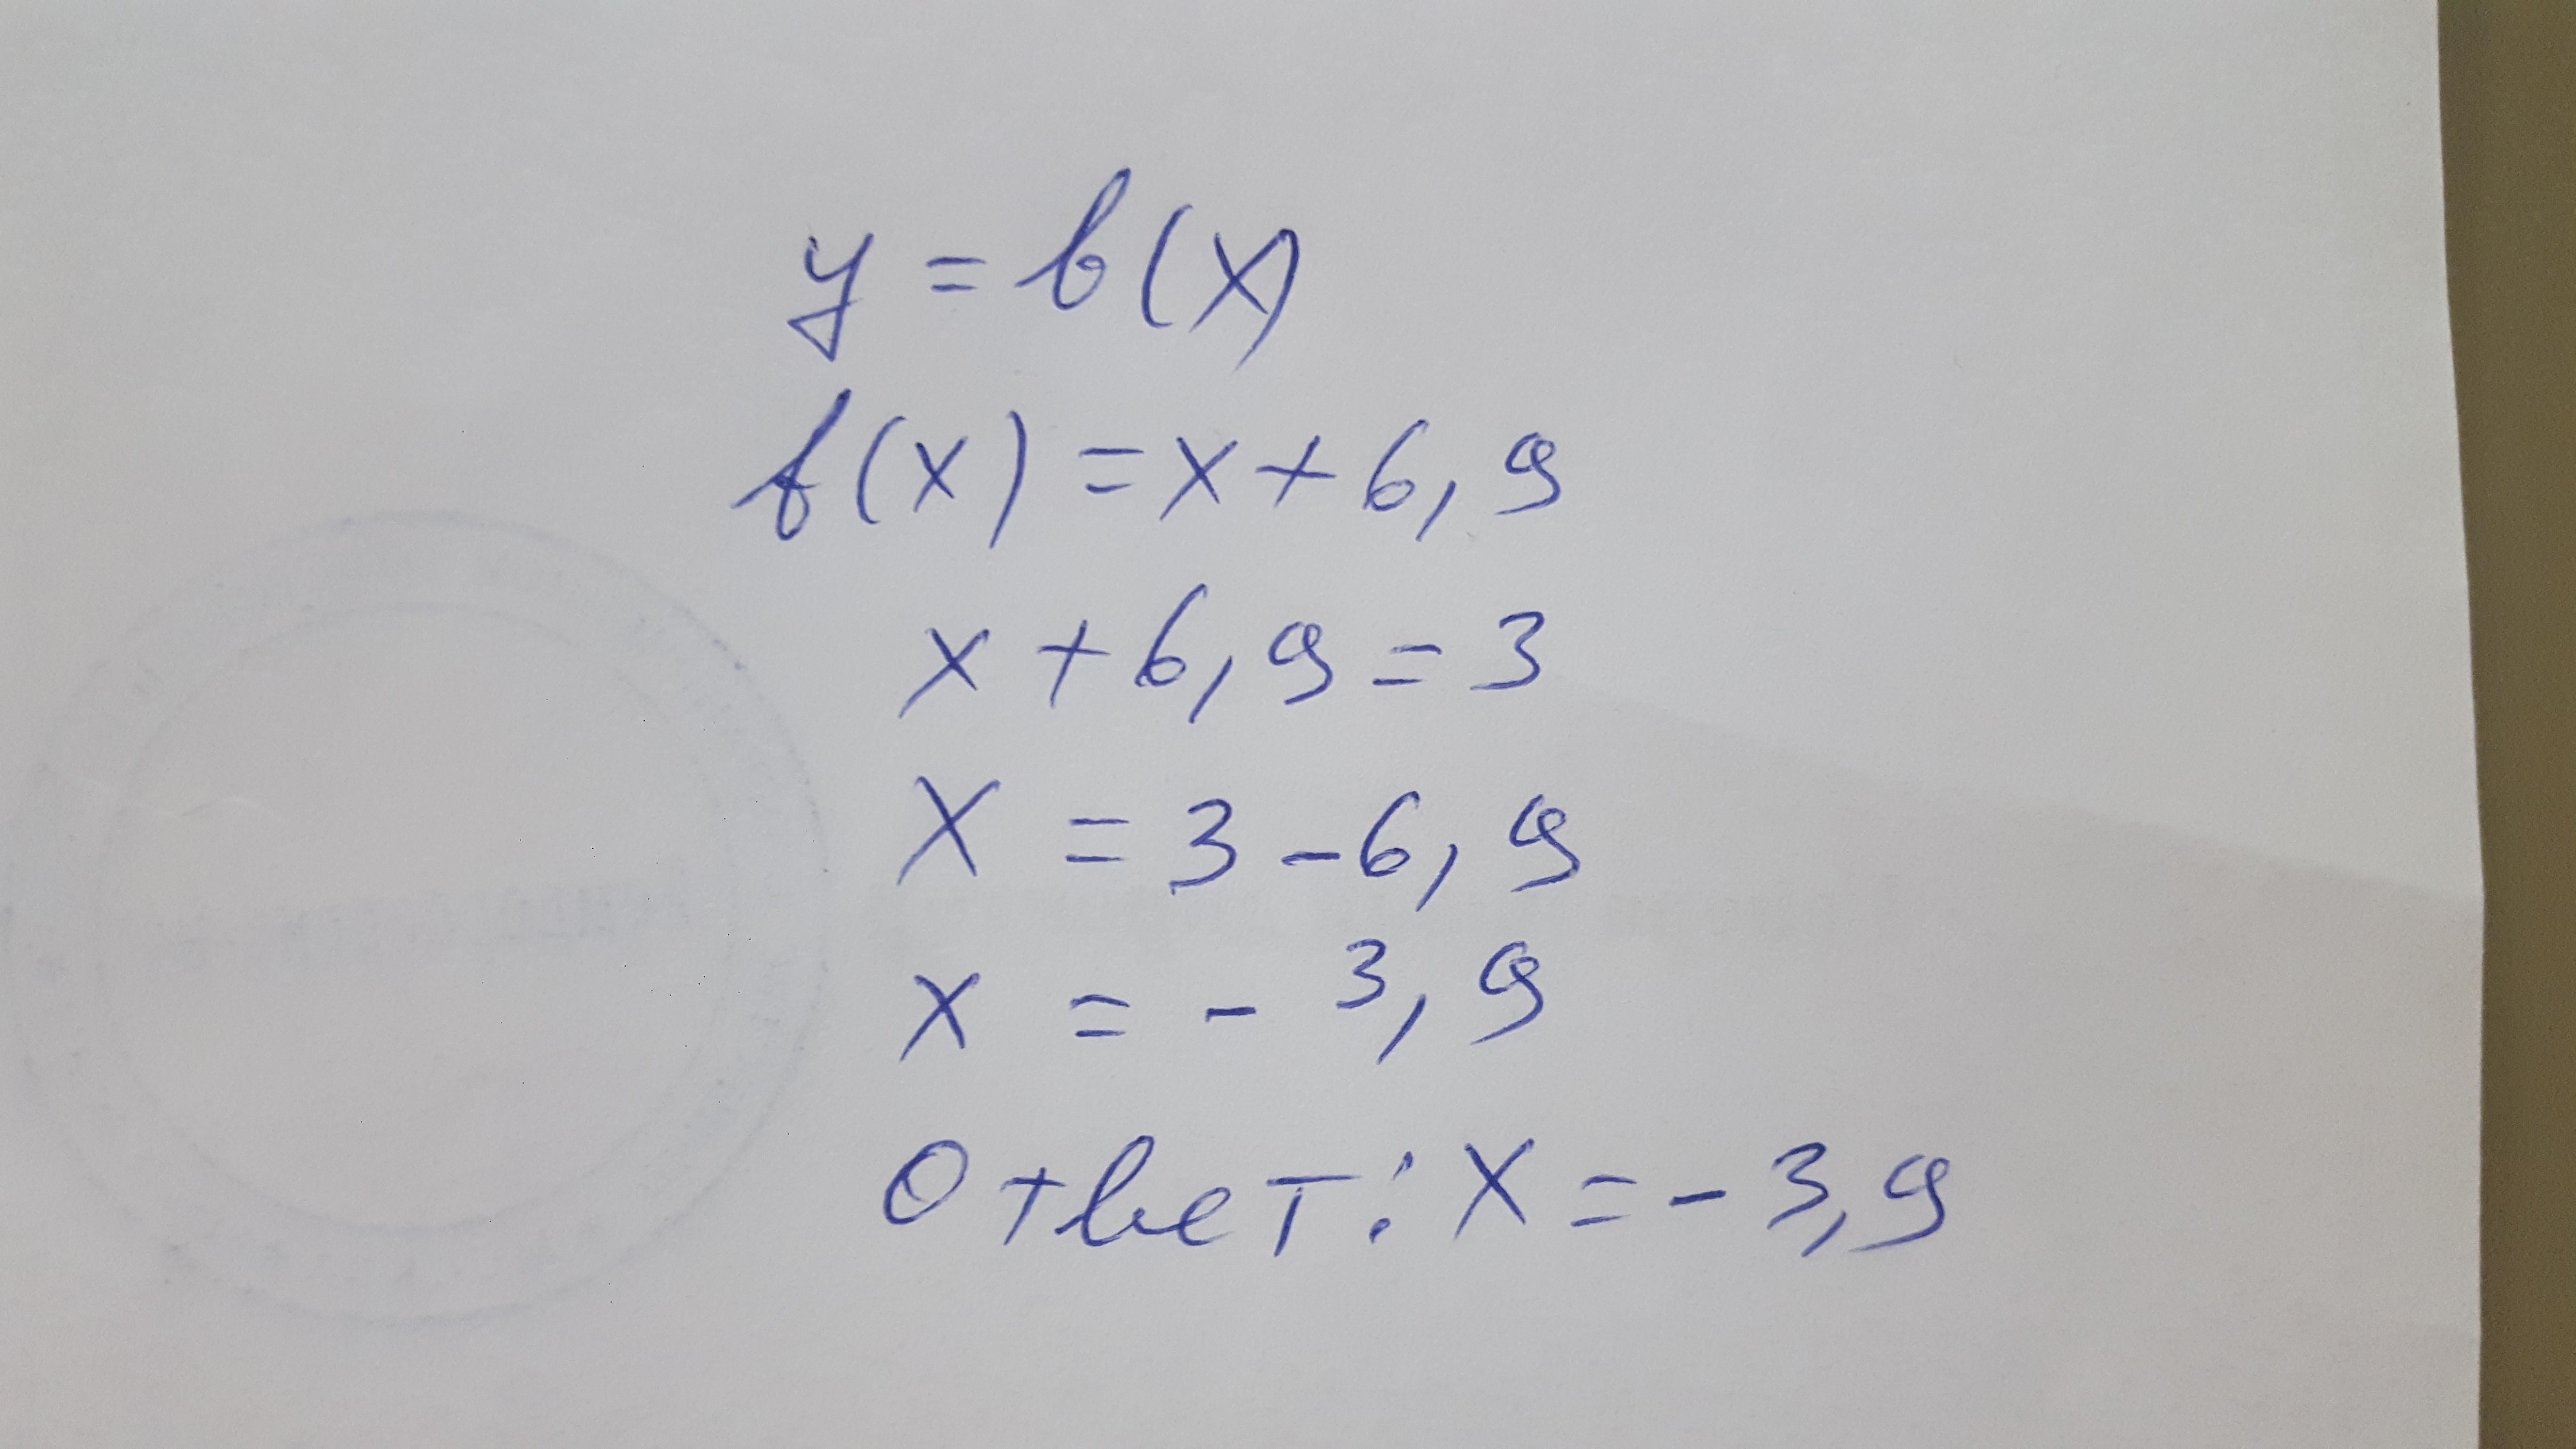 y = f(x)
f(x) = x + 6,9
x + 6,9 = 3
x = 3 - 6,9
x = - 3,9
Ответ: x = - 3,9